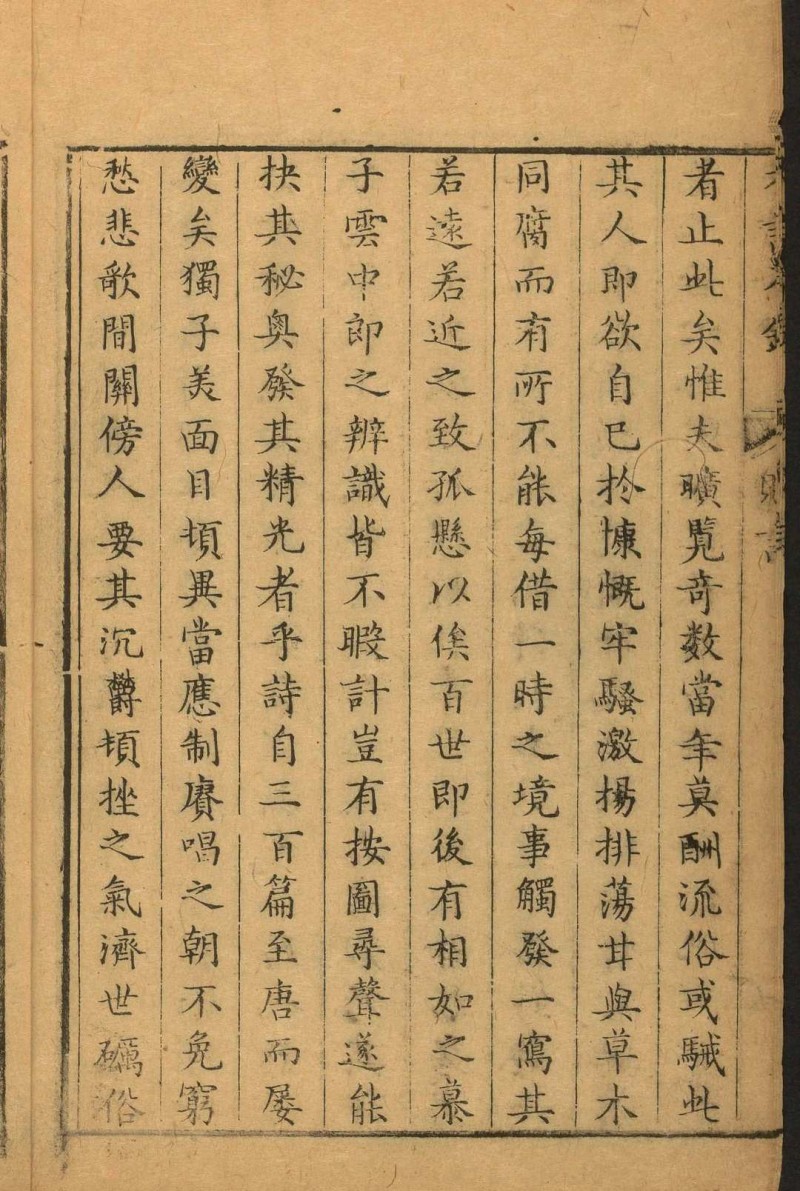 者止此矣惟夫曠覧奇数當年莫酬流俗或駴此
其人即欲自已扵慷慨牢騷激揚排蕩甘與草木
同腐而有所不能每借一時之境事觸發一寫其
若遠若近之致孤懸以俟百世即後有相如之慕
子雲中郎之辨識皆不暇計豈有按圖尋聲遂能
抉其秘奥發其精光者乎詩自三百篇至唐而屡
變矣獨子美面目頓異當應制賡唱之朝不免窮
愁悲歌間關傍人要其沉欝頓挫之氣濟世礪俗